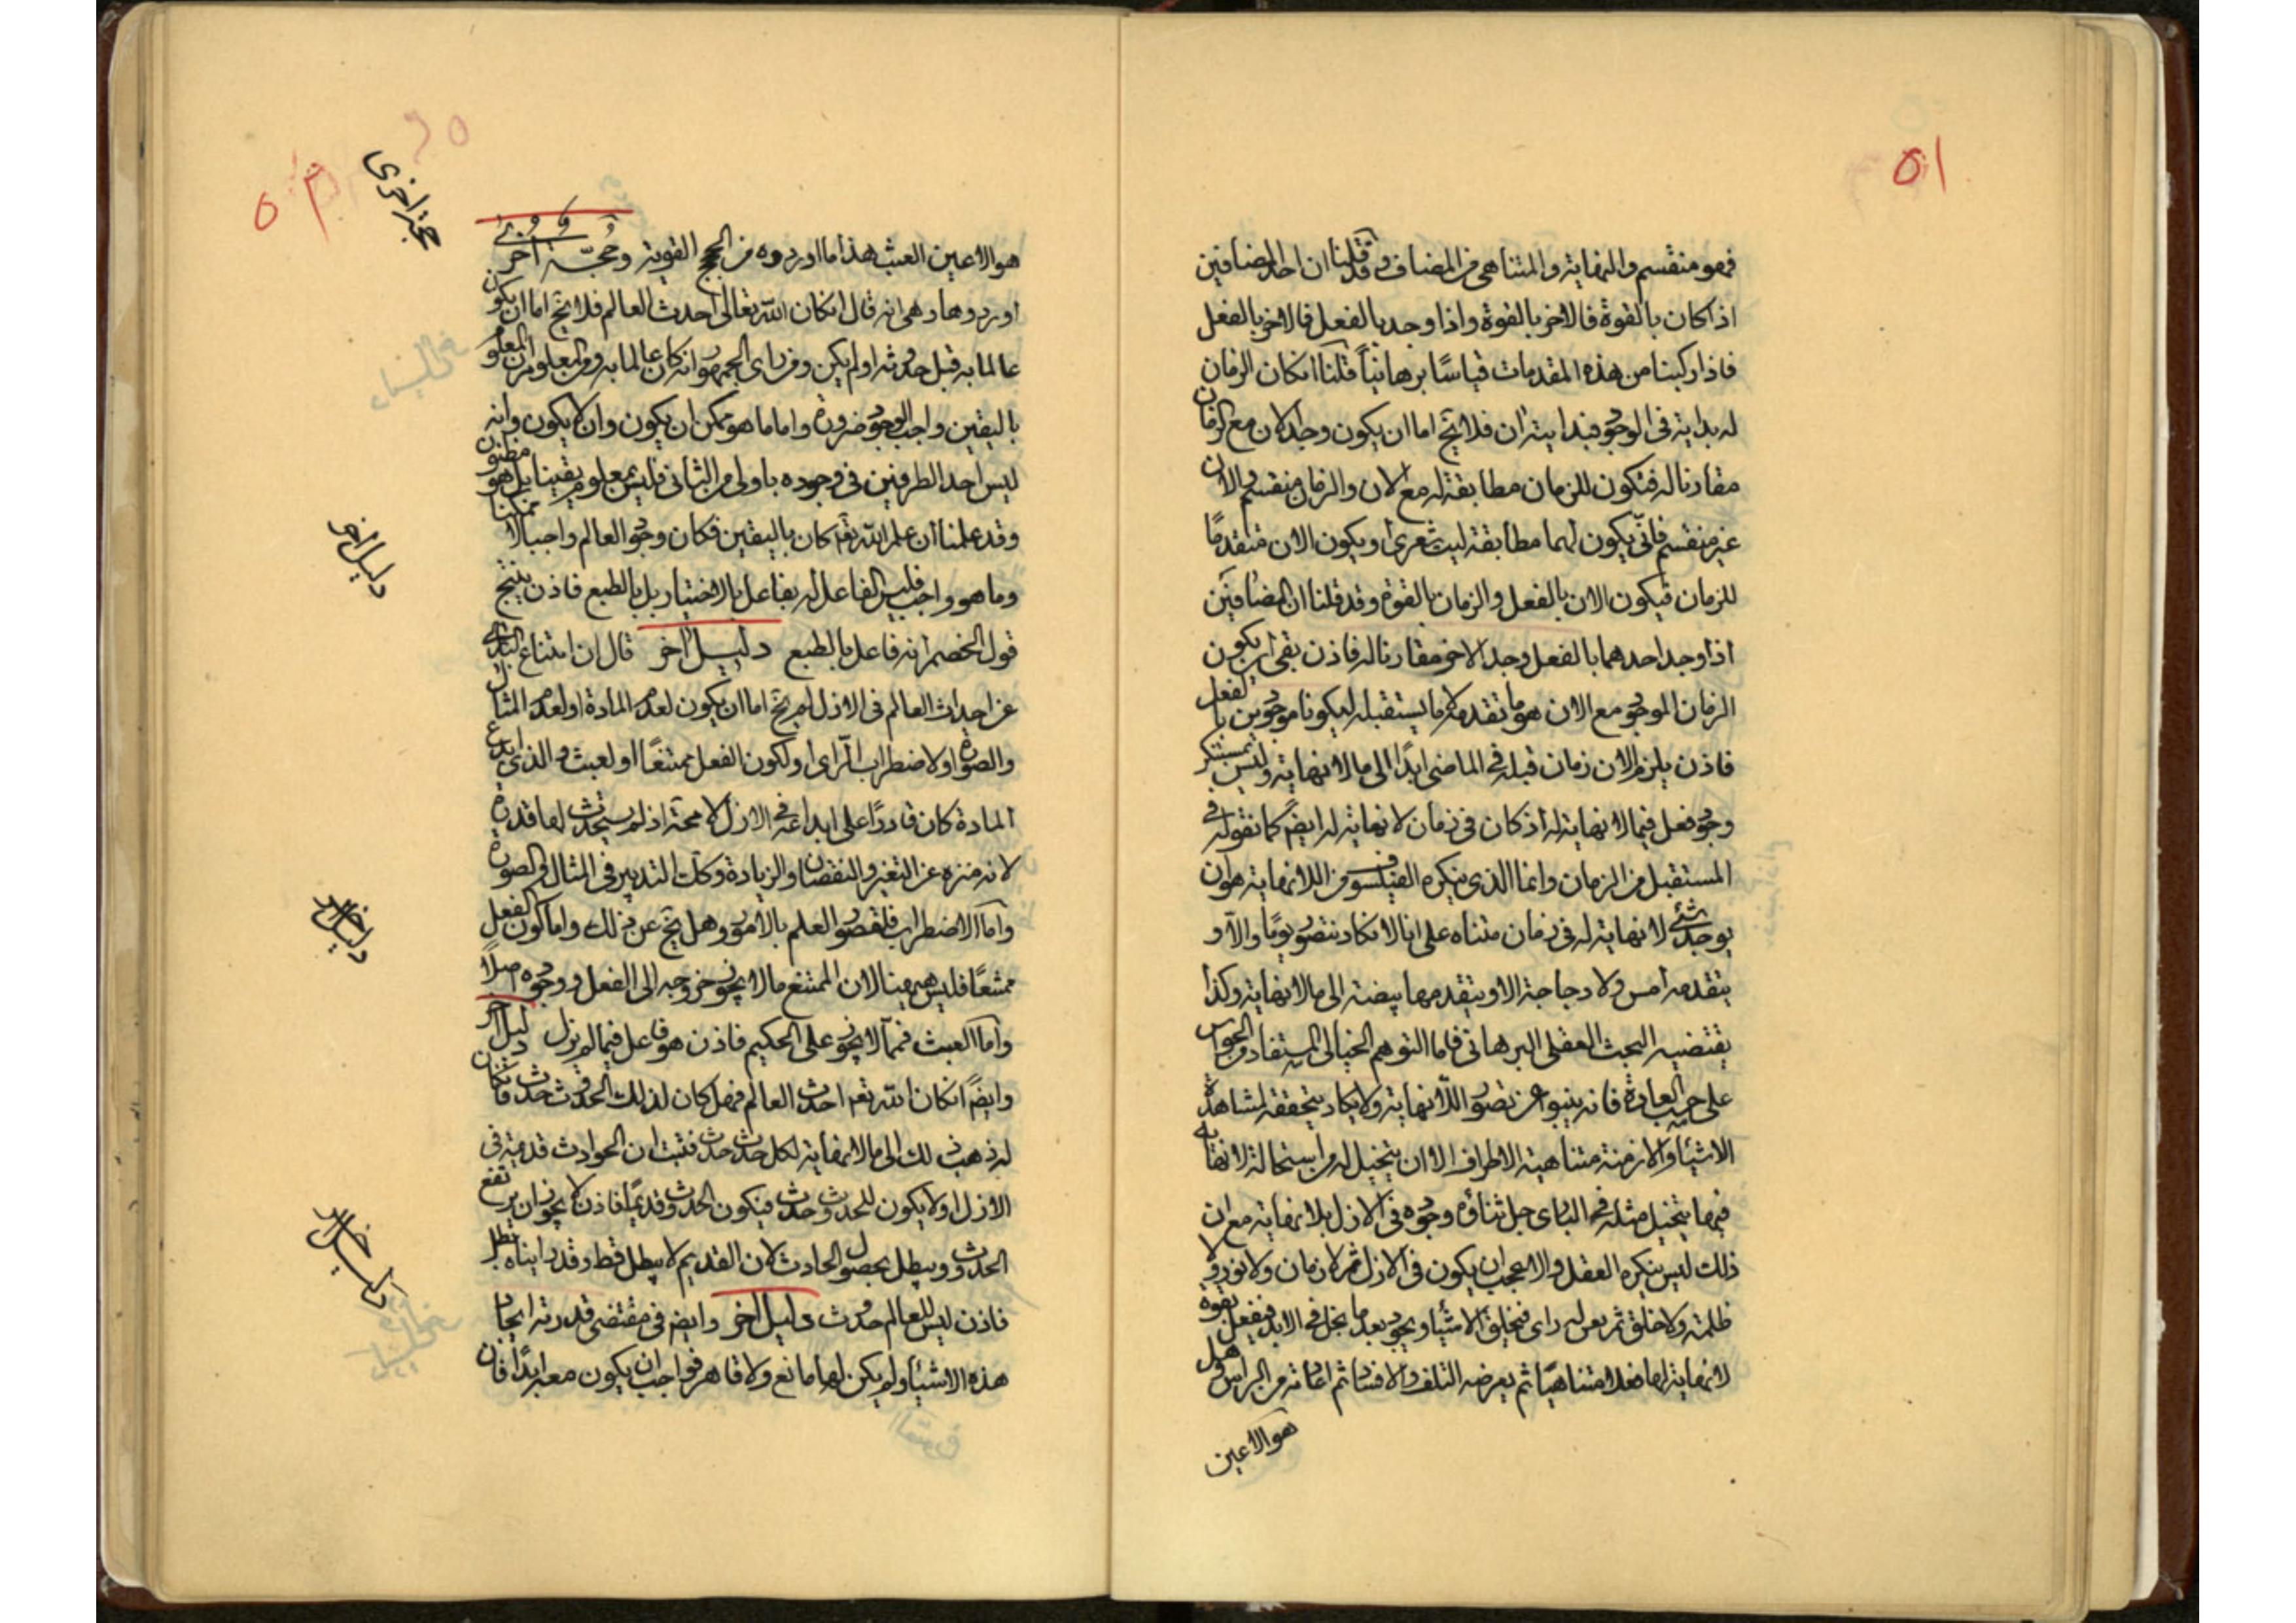 ٥١
فهو منقسم والنهاية والمتناهي من المضاف وقد قلنا ان احد المضافين
اذا كان بالقوة فالاخر بالقوة واذا وجد بالفعل فالاخر بالفعل
فاذا ركبنا من هذه المقدمات قياسًا برهانيًا قلنا ان كان الزمان
له بداية في الوجود فبدايته آن فلا يخ اما ان يكون وجد الآن مع الزمان
مقارنا له فتكون للزمان مطابقة له مع الآن والزمان منقسم والآن
غير منقسم فانّى يكون لهما مطابقة ليت شعرى او يكون الآن متقدمًا
للزمان فيكون الآن بالفعل والزمان بالقوة وقد قلنا ان المضافين
اذا وجد احدهما بالفعل وجد الاخر مقارنا له فاذن بقى ان يكون
الزمان الموجود مع الآن هو ما تقدمه لا ما يستقبله ليكونا موجودين بالفعل
فاذن يلزم الآن زمان قبله في الماضى ابدًا الى ما لا نهاية وليس بمستنكر
وجود فعل فيما لا نهاية له اذ كان في زمان لا نهاية له ايضً كما تقوله في
المستقبل من الزمان وانما الذى ينكره الفيلسوف من اللانهاية هو ان
يوجد شئ لا نهاية له في زمان متناه على انا لا نكاد نتصور يومًا والا و
يتقدمه امس ولا دجاجة الا ويتقدمها بيضة الى ما لا نهاية وكذا
يقتضيه البحث العقلى البرهانى فاما التوهم الخيالى المستفاد من الحواس
على حسب العادة فانه ينبو عن تصور اللانهاية ولا يكاد يتحققه لمشاهدة
الاشياء والازمنة متناهية الاطراف الا ان يتخيل له من استحالة لا نهاية
فيها يتخيل مثله في البارى جل ثناؤه وجوده في الازل بلا نهاية مع ان
ذلك ليس ينكره العقل والا عجب ان يكون في الازل ثم لا زمان ولا نور ولا
ظلمة ولا خلق ثم يعن له راى فيخلق الاشياء ويجود بعد ما بخل في الابد فيفعل بقوة
لا نهاية لها فعلا متناهيًا ثم يعرضه التلف والافساد ثم اعادته من الراس وهل
هو الا عين
٥٢
حجة اخرى
هو الا عين العبث هذا ما اوردوه من الحجج القوية وحُجّة اخرى
اوردوها وهى انه قال ان كان الله تعالى احدث العالم فلا يخ اما ان يكون
عالما به قبل حدوثه او لم يكن ومن راى الجمهور انه كان عالما به ومن المعلوم ان المعلوم
باليقين واجب الوجود ضرورة واما ما هو ممكن ان يكون وان لا يكون وانه
ليس احد الطرفين في وجوده باولى من الثانى فليس بمعلوم يقينا بل هو مظنون
وقد علمنا ان علم الله تعَ كان باليقين فكان وجود العالم واجبا لا ممكنا
دليل آخر
وما هو واجب فليس الفاعل له بفاعل بالاختيار بل بالطبع فاذن ينتج
قول الخصم انه فاعل بالطبع دليل آخر قال ان امتناع البارى
عن احداث العالم في الازل لم يخ اما ان يكون لعدم المادة او لعدم المثال
والصورة او لاضطراب الراى او لكون الفعل ممتنعًا او لعبث والذى ابدع
المادة كان قادرًا على ابداعه في الازل لا محَة اذ لم يستحدث لها قدرة
لانه منزه عن التغير والنقصان والزيادة وكذلك التدبير في المثال في الصورة
دليل اخر
واما الاضطراب فلقصور العلم بالامور وهل يخ عن ذلك واما كون الفعل
ممتنعًا فليس ههنا لان الممتنع ما لا يجوز خروجه الى الفعل ووجوده اصلاً
واما العبث فمما لا يجوز على الحكيم فاذن هو فاعل فيما لم يزل دليل آخر
وايضً ان كان الله تعَ احدث العالم فهل كان لذلك الحدوث حدوث فان كان
له ذهب ذلك الى ما لا نهاية لكل حدوث حدوث فثبت ان الحوادث قديمة في
الازل او لا يكون للحدوث حدوث فيكون الحدوث قديمًا فاذن لا يجوز ان يرتفع
دليل اخر
الحدوث ويبطل بحصول الحادث لان القديم لا يبطل قط وقد رايناه بطل
فاذن ليس للعالم حدوث دليل آخر وايضً في مقتضى قدرته ايجاد
هذه الاشياء ولم يكن لها مانع ولا قاهر فواجب ان يكون معه ابدًا فان